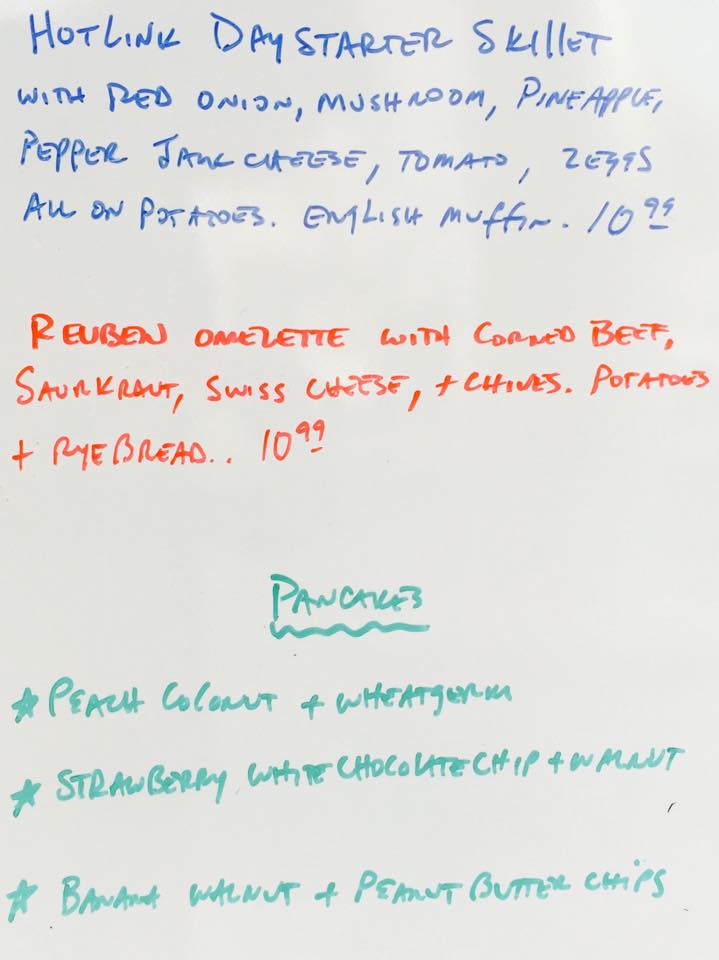 HOTLINK DAYSTARTER SKILLET
WITH RED ONION, MUSHROOM, PINEAPPLE,
PEPPER JACK CHEESE, TOMATO, 2 EGGS
ALL ON POTATOES. ENGLISH MUFFIN. 10 99
REUBEN OMELETTE WITH CORNED BEEF,
SAURKRAUT, SWISS CHEESE, + CHIVES. POTATOES
+ RYE BREAD.. 10 99
PANCAKES
* PEACH COCONUT + WHEATGERM
* STRAWBERRY WHITE CHOCOLATE CHIP + WALNUT
* BANANA WALNUT + PEANUT BUTTER CHIPS